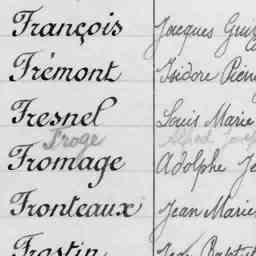 François Jacques
Frémont Isidore Pierre
Fresnel Louis Marie
Froge Alfred Joseph
Fromage Adolphe Je
Fronteaux Jean Marie
Frostin Jean Baptist